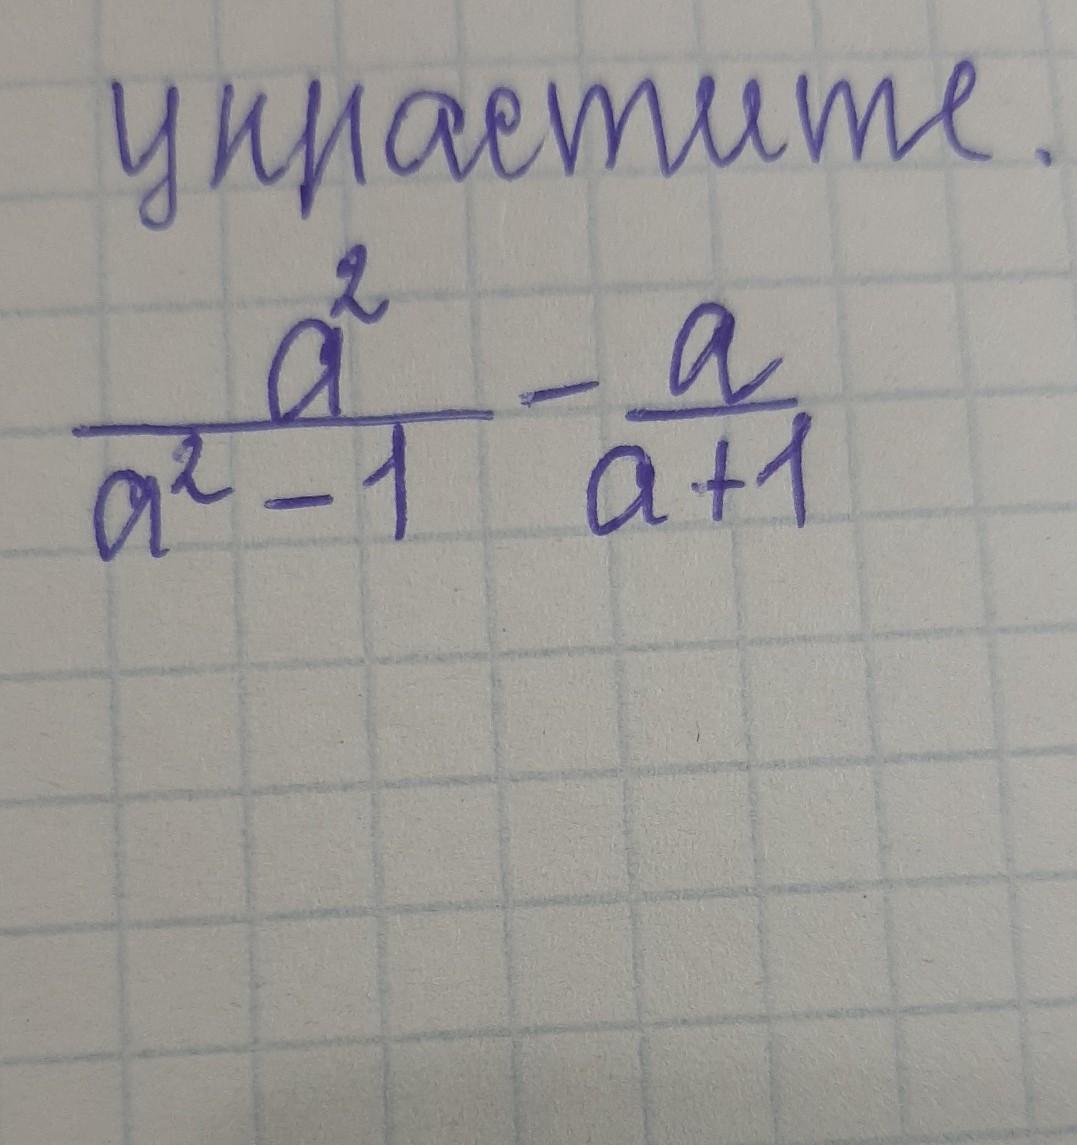 упрастите.
a² / (a² - 1) - a / (a + 1)